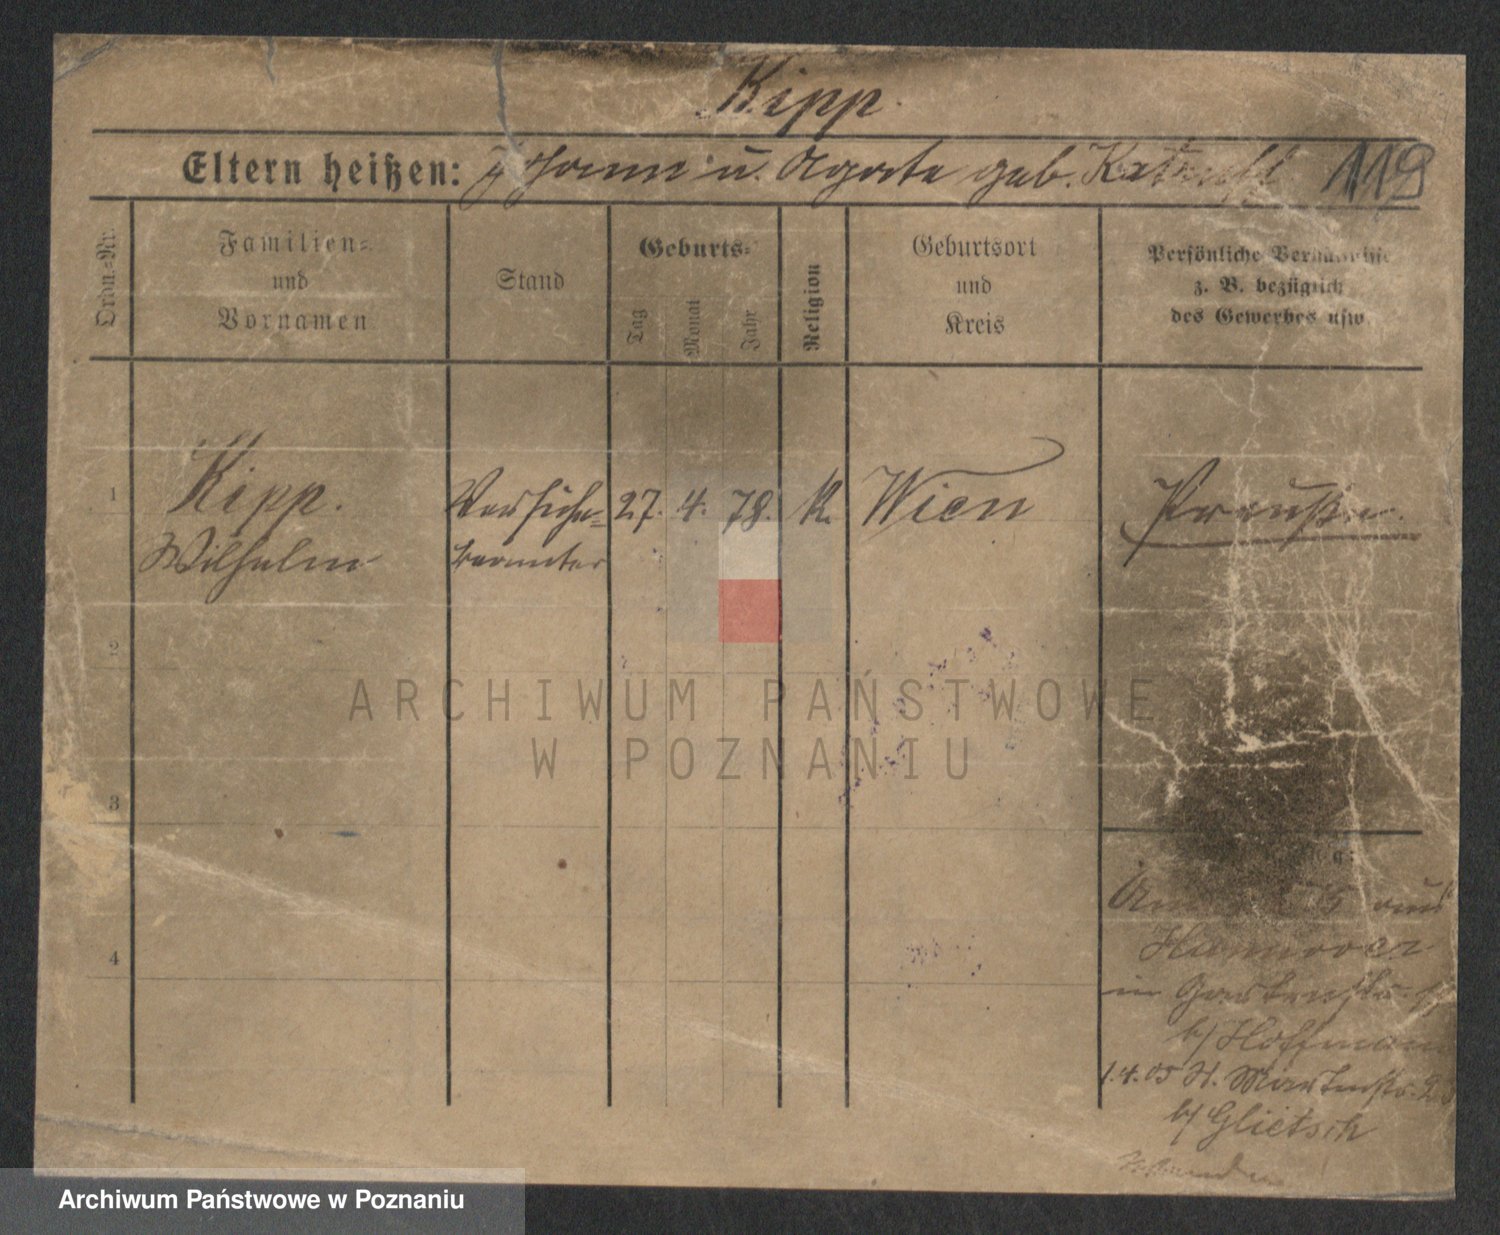 Kipp.
Eltern heißen: Johann u. Agate geb. 119
Ordn.-Nr.
Familien- und Vornamen
Stand
Geburts-
Tag
Monat
Jahr
Religion
Geburtsort und Kreis
Persönliche Verhältnisse
z. B. bezüglich
des Gewerbes usw.
1 Kipp. Versich.- 27. 4. 78. K. Wien Preuße.
Wilhelm beamter
2
3
4
aus
Hannover
in Gartenstr.
b/ Hoffmann
1.4.05 St. Martinstr.
b/ Glietsch
ARCHIWUM PAŃSTWOWE
W POZNANIU
Archiwum Państwowe w Poznaniu